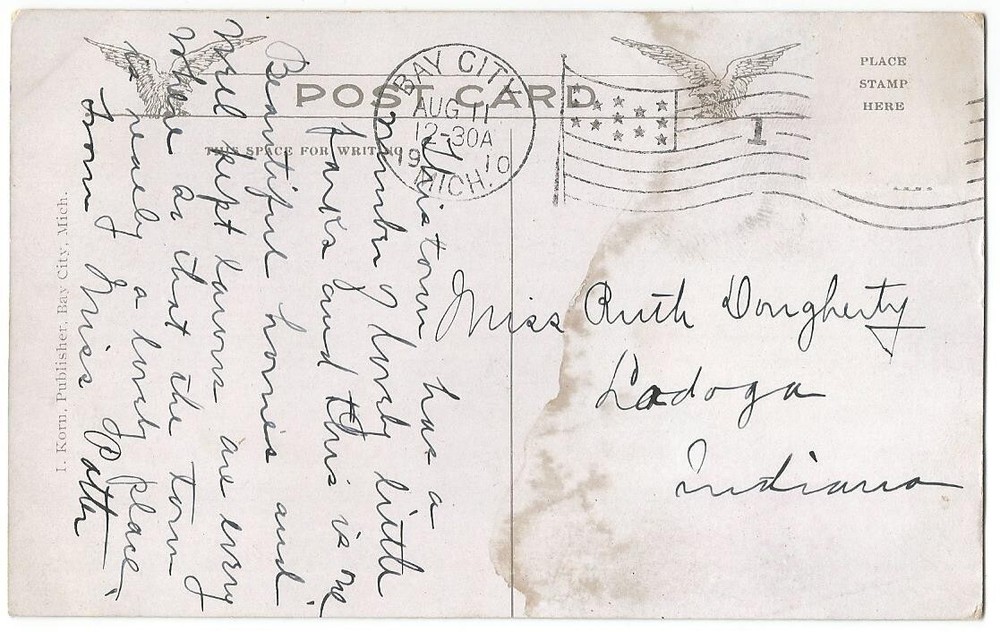 POST CARD
THIS SPACE FOR WRITING
PLACE
STAMP
HERE
BAY CITY
AUG 11
12-30A
1910
MICH.
1
This town has a
number of lovely little
parks and this is one
Beautiful homes and
well kept lawns are every
where so that the town
is really a lovely place.
From Miss Potter
Miss Ruth Dougherty
Ladoga
Indiana
I. Korn, Publisher, Bay City, Mich.